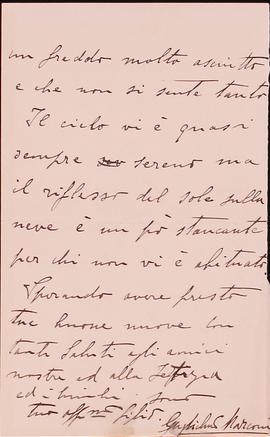 un freddo molto asciutto
e che non si sente tanto
Il cielo vi è quasi
sempre sereno ma
il riflesso del sole sulla
neve è un pò stancante
per chi non vi è abituato.
Sperando avere presto
tue buone nuove con
tanti saluti agli amici
nostri ed alla
ed i sono
tuo aff.mo figlio Guglielmo Marconi